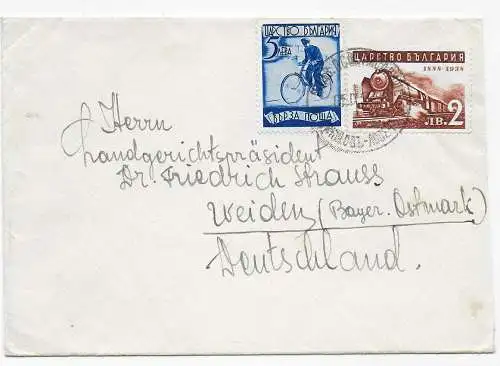 ЦАРСТВО БЪЛГАРИЯ
5 ЛЕВА
БЪРЗА ПОЩА
ЦАРСТВО БЪЛГАРИЯ
1888-1938
ЛВ. 2
Herrn
Landgerichtspräsident
Dr. Friedrich Strauss
Weiden (Bayer. Ostmark)
Deutschland.